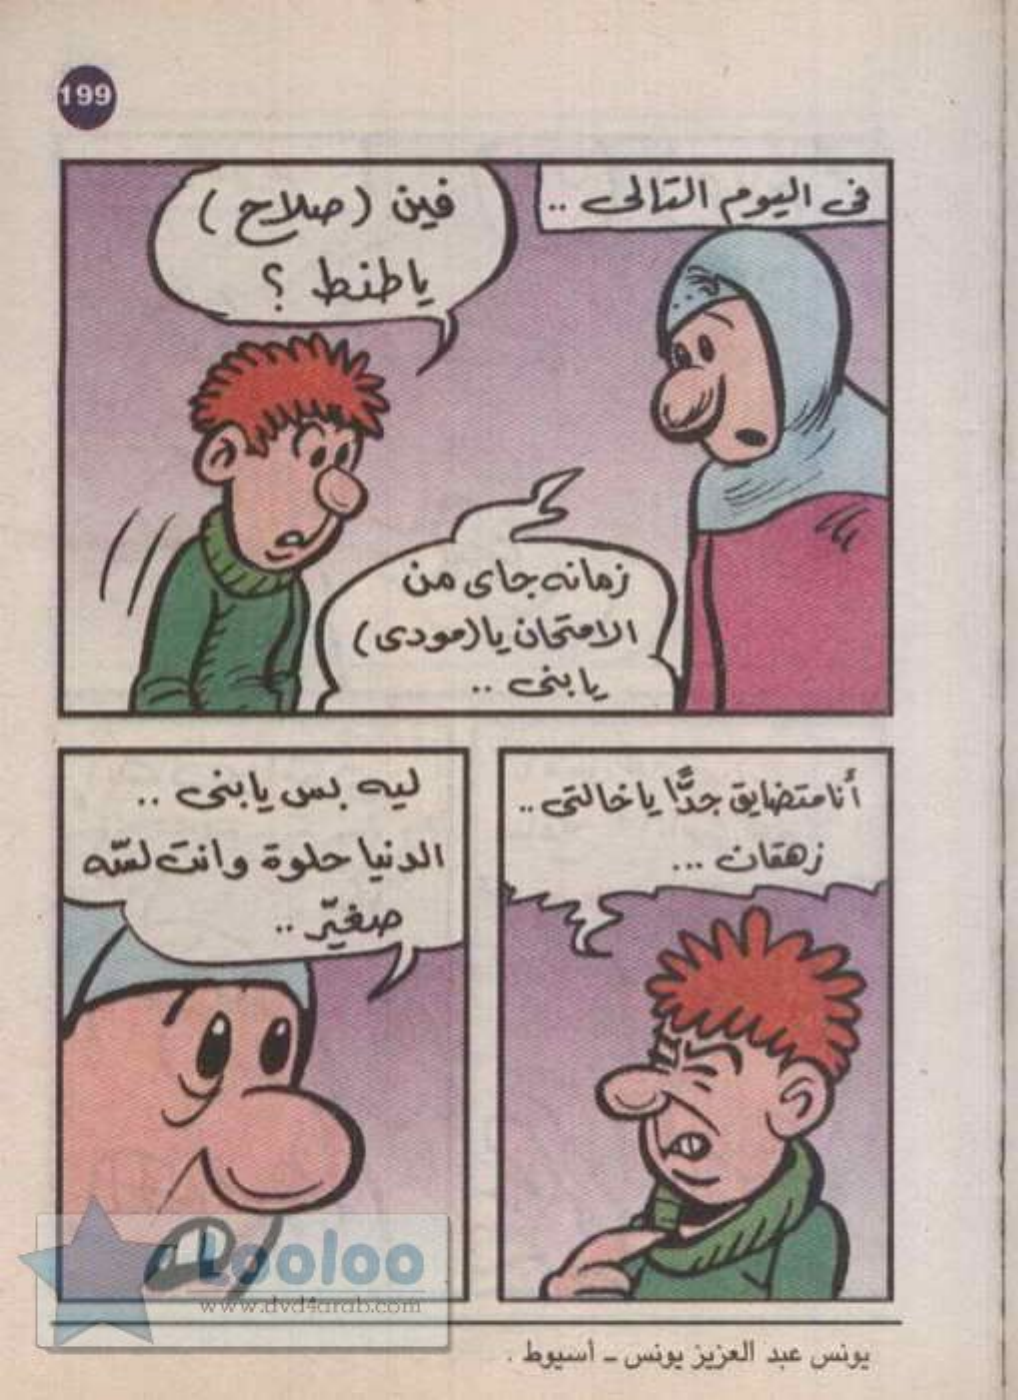 199
فى اليوم التالى ..
فين (صلاح)
ياطنط ؟
زمانه جاى من
الامتحان يا(مودى)
يابنى ..
أنا متضايق جدًّا يا خالتى ..
زهقان ...
ليه بس يابنى ..
الدنيا حلوة وانت لسّه
صغيّر ..
Looloo
www.dvd4arab.com
يونس عبد العزيز يونس ــ أسيوط .